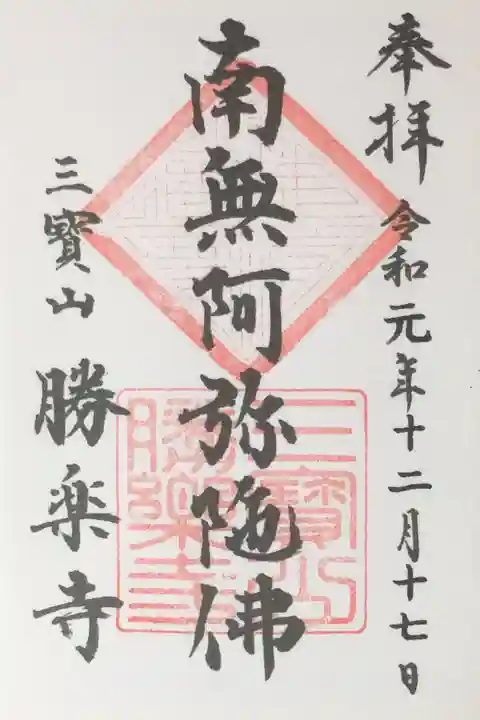 奉拝 令和元年十二月十七日
南無阿弥陀佛
三寳山 勝楽寺
三寳山
勝樂寺